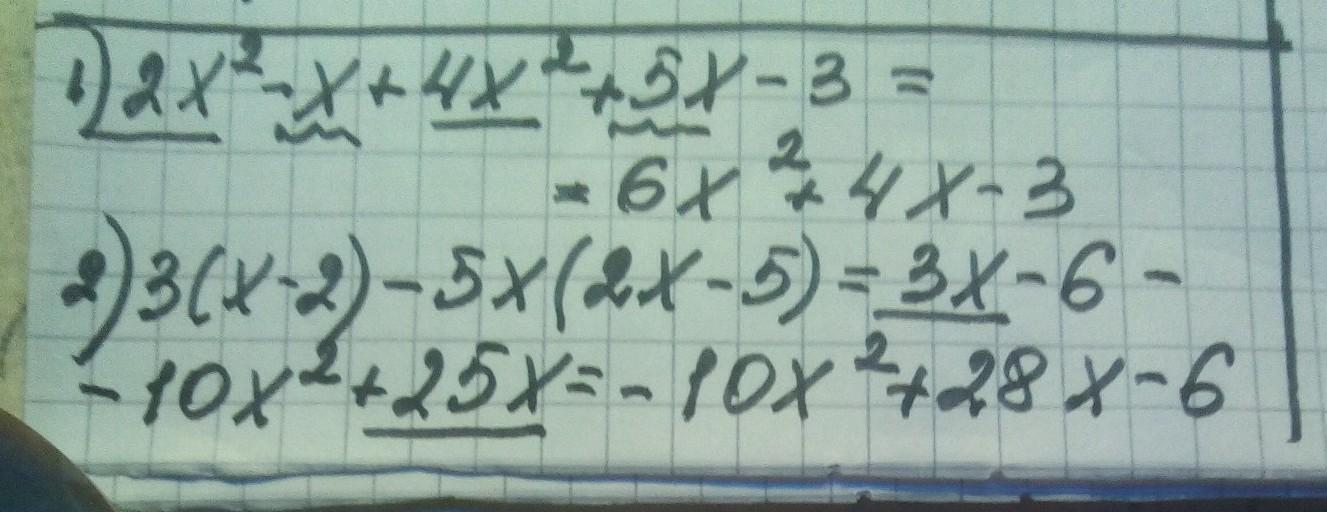 1) 2x² - x + 4x² + 5x - 3 =
= 6x² + 4x - 3
2) 3(x-2) - 5x(2x-5) = 3x - 6 -
- 10x² + 25x = - 10x² + 28x - 6